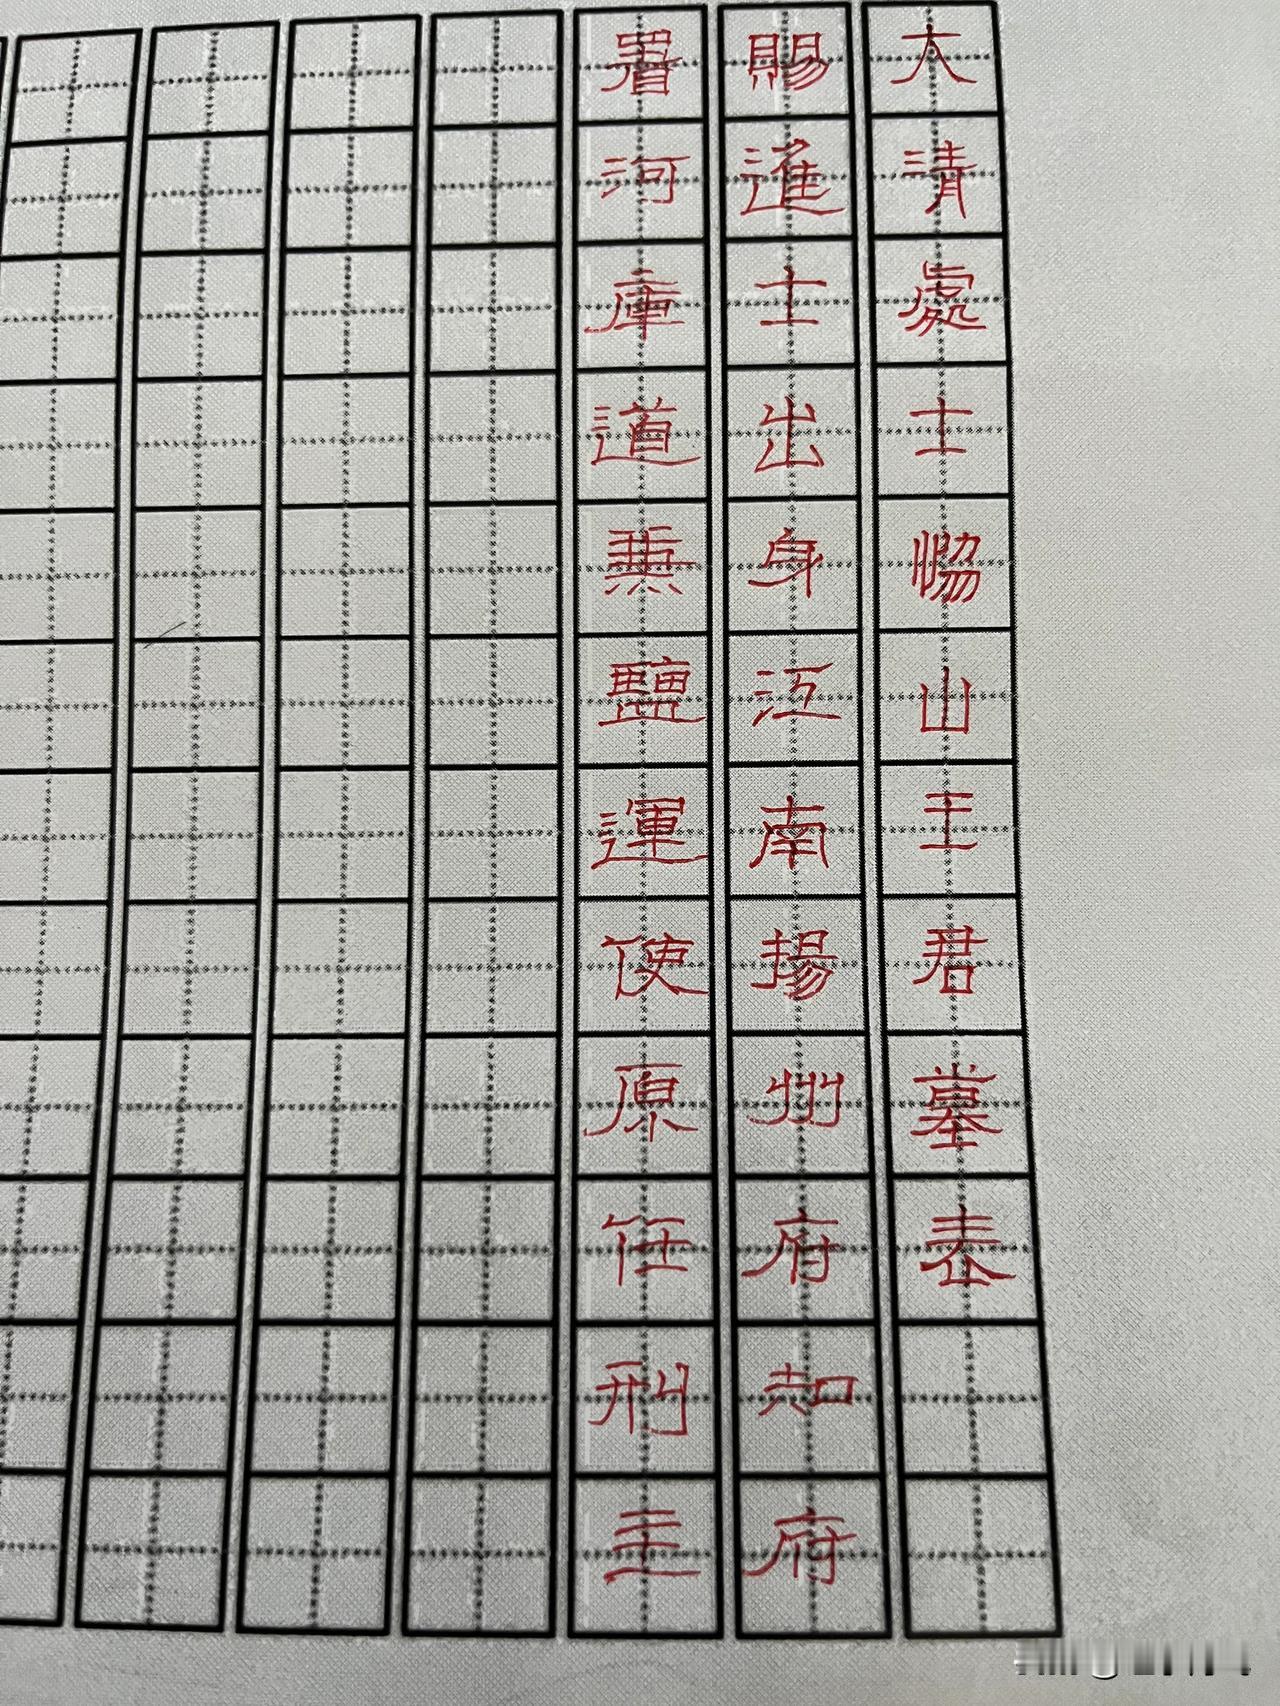 大清處士恊山王君墓表
賜進士出身江南揚州府知府
署河庫道兼鹽運使原任刑主